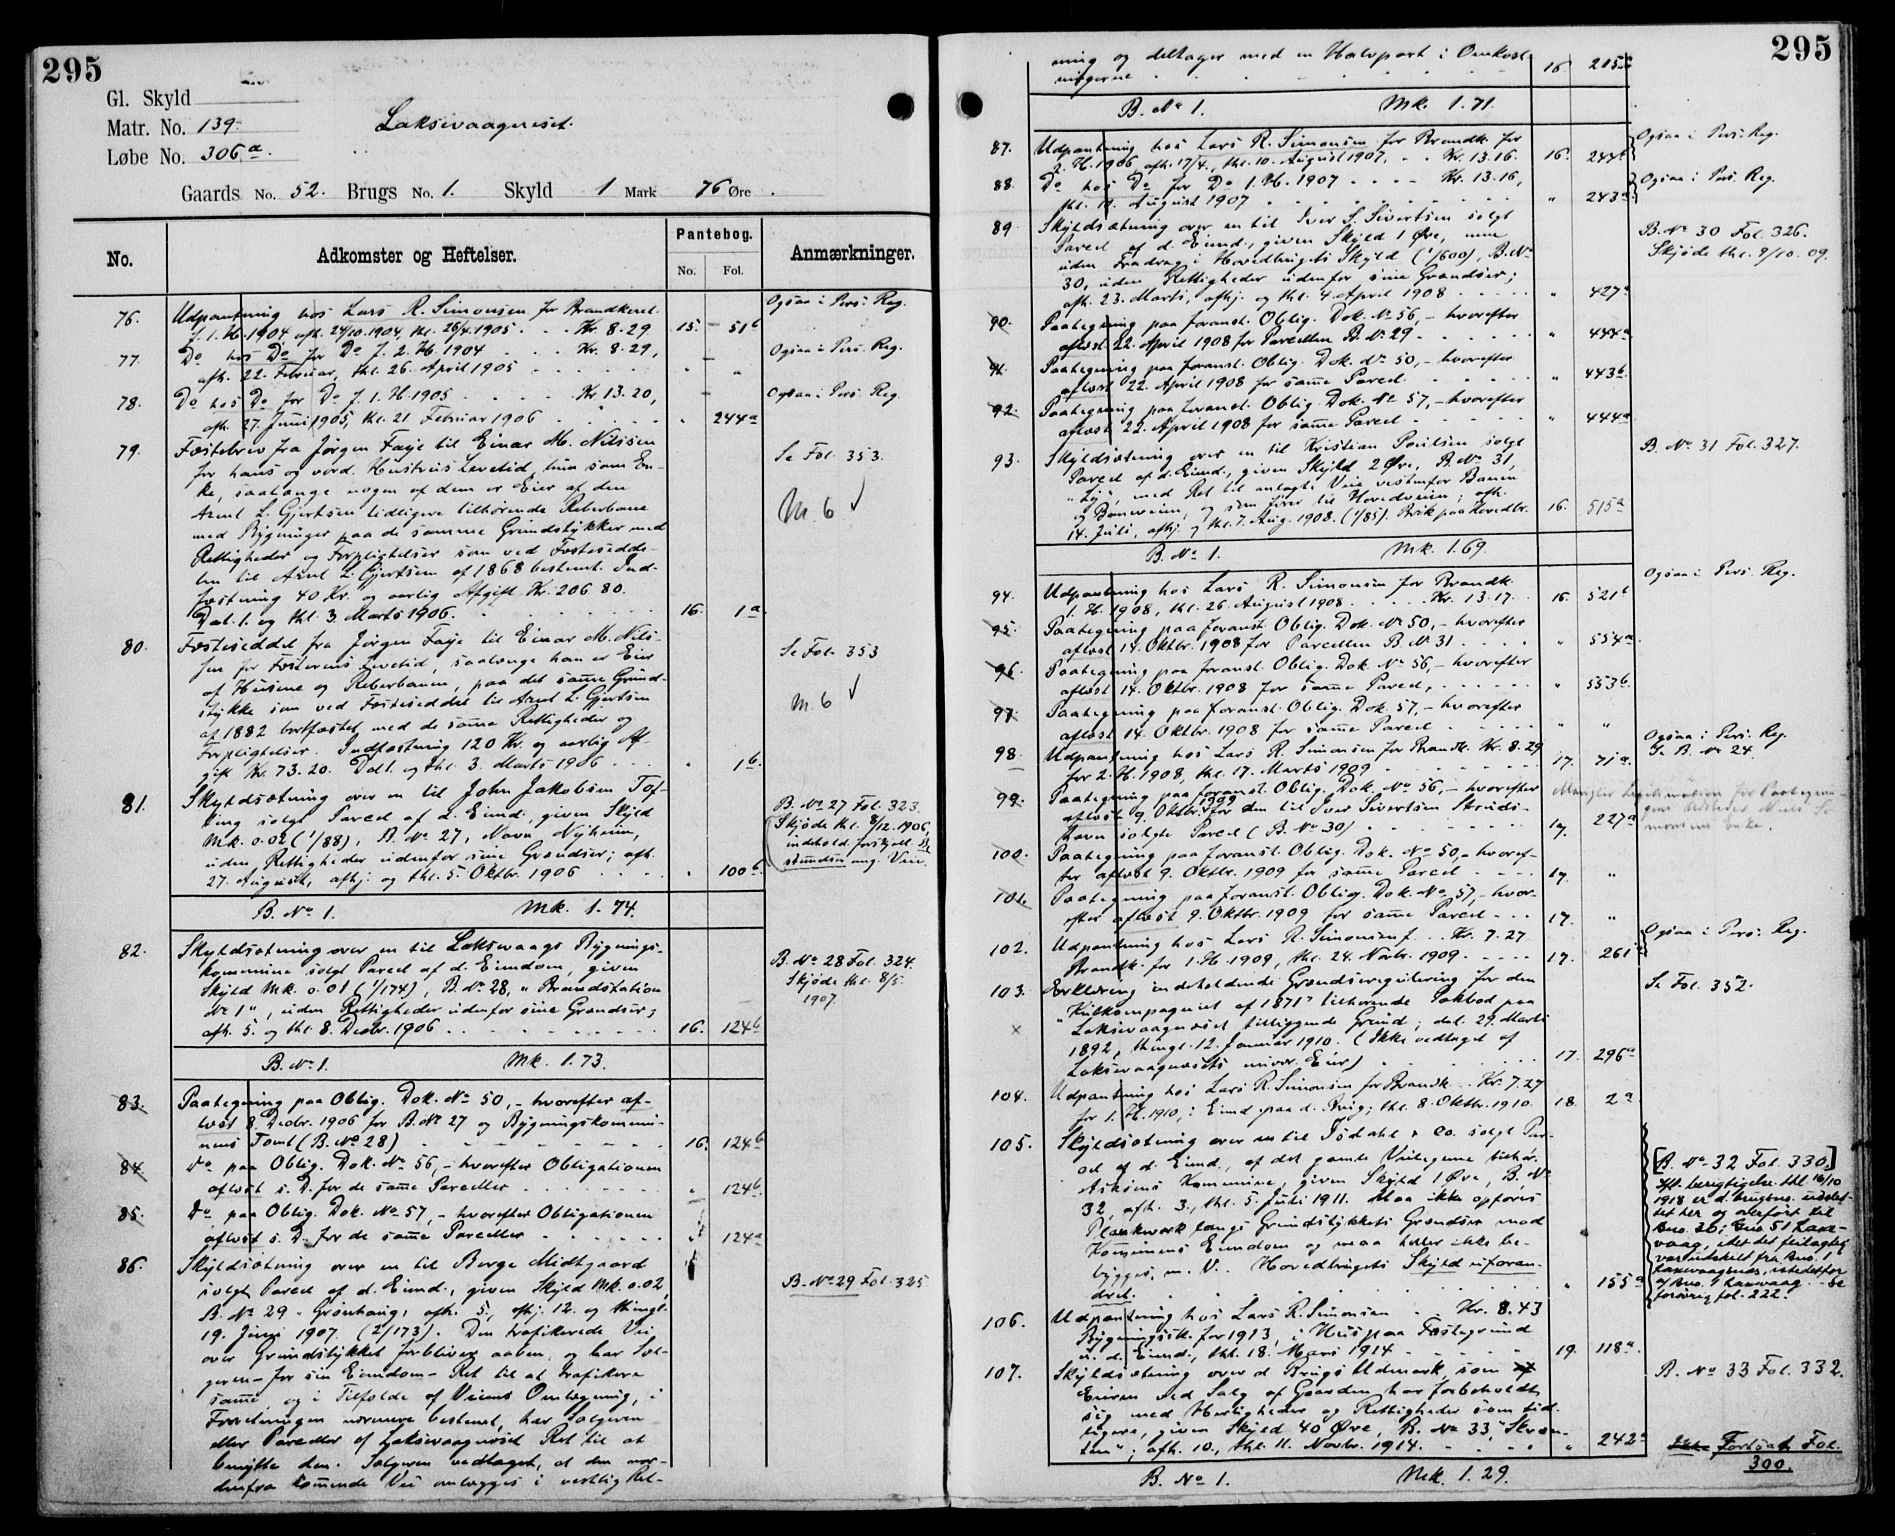 295
Gl. Skyld
Matr. No. 139.
Løbe No. 306a.
Laksevaagneset.
Gaards No. 52. Brugs No. 1. Skyld 1 Mark 76 Øre.
No. Adkomster og Heftelser. Pantebog. Anmærkninger.
No. Fol.
76. Udpantning hos Lars R. Simonsen for Brandkont. Ogsaa i Pers. Reg.
f. 1. H. 1904, afh. 24/10.1904, thl. 26/4.1905 Kr. 8.29, 15. 51b
77. Do hos Do for Do f. 2. H. 1904 Kr. 8.29, Ogsaa i Pers. Reg.
afh. 22. Februar, thl. 26. April 1905 " "
78. Do hos Do for Do f. 1. H. 1905 Kr. 13.20, Ogsaa i Pers. Reg.
afh. 27. Juni 1905, thl. 21. Februar 1906 " 244a
79. Fæstebrev fra Jørgen Faye til Einar M. Nilssen Se Fol. 353.
for hans og vord. Hustrus Levetid, hun som En-
ke, saalænge nogen af dem er Eier af den
Arent L. Gjertsen tidligere tilhørende Reberbane M. 6 ✓
med Bygninger paa de samme Grundstykker med
Rettigheder og Forpligtelser som ved Fæstesedde-
len til Arent L. Gjertsen af 1868 bestemt. Ind-
fæstning 40 Kr. og aarlig Afgift Kr. 206.80.
Dat. 1. og thl. 3. Marts 1906. 16. 1a
80. Fæsteseddel fra Jørgen Faye til Einar M. Nils- Se Fol. 353
sen for Fæsterens Levetid, saalænge han er Eier
af Husene og Reberbanen, paa det samme Grund-
stykke som ved Fæsteseddel til Arent L. Gjertsen M. 6 ✓
af 1882 bortfæstet, med de samme Rettigheder og
Forpligtelser. Indfæstning 120 Kr. og aarlig Af-
gift Kr. 73.20. Dat. 1. og thl. 3. Marts 1906 " 1b.
81. Skyldsætning over en til John Jakobsen Tof- B. No 27 Fol. 323.
ting solgt Parcel af d. Eiend., given Skyld Skjøde thl. 8/12.1906,
Mk. 0.02 (1/88), B. No 27, Navn, Nyheim, indehold. forskjell. Be-
uden Rettigheder udenfor sine Grændser; afh. stemmelser ang. Vei.
27. August, afhj. og thl. 5. Oktbr. 1906 " 100b.
B. No 1. Mk. 1.74.
82. Skyldsætning over en til Laksevaags Bygnings-
kommune solgt Parcel af d. Eiendom, given B. No 28 Fol. 324.
Skyld Mk. 0.01 (1/174), B. No 28, "Brandstation Skjøde thl. 8/5.
No 1", uden Rettigheder udenfor sine Grændser; 1907.
afh. 5. og thl. 8. Decbr. 1906 16. 124b
B. No 1. Mk. 1.73.
83. Paategning paa Oblig. Dok. No 50, - hvorefter af-
løst 8. Decbr. 1906 for B. No 27 og Bygningskommu-
nens Tomt (B. No 28) 16. 124b
84. do paa Oblig. Dok. No 56, - hvorefter Obligationen
afløst s. D. for de samme Parceller " 124b
85. Do paa Oblig. Dok. No 57, - hvorefter Obligationen
afløst s. D. for de samme Parceller " 124a
86. Skyldsætning over en til Berge Midtgaard
solgt Parcel af d. Eiend., given Skyld Mk. 0.02, B. No 29 Fol. 325
B. No 29 "Grønhaug, afh. 5., afhj. 12. og thingl.
19. Juni 1907. (2/173). Den trafikerede Vei
over Grundstykket forbliver aaben, og har Sæl-
geren - for sin Eiendom - Ret til at trafikere
samme, og i Tilfælde af Veiens Omlægning, i
Forretningen nærmere bestemt, har Sælgeren
eller Parceller af Laksevaagneset Ret til at
benytte den. Sælgeren vedtaget, at den nor-
denfra kommende Vei omlægges i vestlig Ret-
295
ning og deltager med en Halvpart i Omkost-
ningerne 16. 215
B. No 1. Mk. 1.71.
87. Udpantning hos Lars R. Simonsen for Brandk. for Ogsaa i Pers. Reg.
2. H. 1906, afh. 17/4., thl. 10. August 1907. Kr. 13.16. 16. 244b
88. Do hos Do for Do 1. H. 1907 Kr. 13.16, Ogsaa i Pers. Reg.
thl. August 1907 " 243a
89. Skyldsætning over en til Iver S. Sivertsen solgt
Parcel af d. Eiend., given Skyld 1 Øre, men B. No 30 Fol. 326.
uden Fradrag i Hovedbrugets Skyld (1/600), B. No Skjøde thl. 9/10.09.
30, uden Rettigheder udenfor sine Grændser;
afh. 23. Marts, afhj. og thl. 4. April 1908 " 427a
90. Paategning paa foranst. Oblig. Dok. No 56, - hvorefter
afløst 22. April 1908 for Parcellen B. No 29 " 444a
91. Paategning paa foranst. Oblig. Dok. No 50, - hvorefter
afløst 22. April 1908 for samme Parcel " 443b.
92. Paategning paa foranst. Oblig. Dok. No 57, - hvorefter
afløst 22. April 1908 for samme Parcel " 444a
93. Skyldsætning over en til Kristian Poulsen solgt B. No 31 Fol. 327.
Parcel af d. Eiend., given Skyld 2 Øre, B. No 31,
med Ret til anlagte Veie vestenfor Banen
og Baneveien, og som fører til Hovedveien; afh.
14. Juli, afhj. og thl. 7. Aug. 1908. (1/85). 16. 515a
B. No 1. Mk. 1.69.
94. Udpantning hos Lars R. Simonsen for Brandk. Ogsaa i Pers. Reg.
1. H. 1908, thl. 26. August 1908 Kr. 13.17 16. 521b
95. Paategning paa foranst. Oblig. Dok. No 50, - hvorefter
afløst 14. Oktbr. 1908 for Parcellen B. No 31 " 554a
96. Paategning paa foranst. Oblig. Dok. No 56, - hvorefter
afløst 14. Oktbr. 1908 for samme Parcel, " 553b.
97. Paategning paa foranst. Oblig. Dok. 57, - hvorefter
afløst 14. Oktbr. 1908 for samme Parcel " "
98. Udpantning hos Lars R. Simonsen for Brandk. Kr. 8.29 Ogsaa i Pers. Reg.
for 2. H. 1908, thl. 17. Marts 1909 17. 71a. B. No 24.
99. Paategning paa foranst. Oblig. Dok. No 56, - hvorefter
afløst 9. Oktbr. 1909 for den til Iver Sivertsen
solgte Parcel (B. No 30) 17. 227a
100. Paategning paa foranst. Oblig. Dok. No 50, - hvoref-
ter afløst 9. Oktbr. 1909 for samme Parcel 17. "
101. Paategning paa foranst. Oblig. Dok. No 57, - hvor-
efter afløst 9. Oktbr. 1909 for samme Parcel 17. "
102. Udpantning hos Lars R. Simonsen f. Kr. 7.27 Ogsaa i Pers. Reg.
Brandk. for 1. H. 1909, thl. 24. Novbr. 1909. 17. 261a
103. Erklæring indeholdende Grændseregulering for den Se Fol. 352.
"Kulkompagniet af 1871" tilhørende Pakbod paa
Laksevaagneset tilliggende Grund; dat. 29. Marts
1892, thingl. 12. Januar 1910. (Ikke vedtaget af
Laksevaagnesets nuvær. Eier) 17. 296a
104. Udpantning hos Lars R. Simonsen for Brandk. Kr. 7.27
for 1. H. 1910, i Eiend. paa d. Brug; thl. 8. Oktbr. 1910. 18. 2a
105. Skyldsætning over en til Isdahl & Co. solgt Par-
cel af d. Eiend., af det gamle Veilegeme tilhør. [B. No 32 Fol. 330.]
Askøens Kommune, given Skyld 1 Øre, B. No Ift. berigtigelse thl. 16/10
32, afh. 3., thl. 5. Juli 1911. Maa ikke opføres 1918 er d. brugsnr. uddelet-
Plankverk langs Grundstykkets Grændser mod tet her og overført til
Kommunens Eiendom og maa heller ikke be- Bno. 20, Gno. 51 Laxe-
bygges, m. V. Hovedbrugets Skyld uforan- vaag, idet det feilagtig
dret. " 155a var utskilt fra Bno. 1
Laxevaagnes, istedetfor
af Bno. 1 Laxevaag. - Se
forøvrig fol. 222.
106. Udpantning hos Lars R. Simonsen Kr. 8.43
Bygningssk. for 1913, i Hus paa Fæstegrund
u. d. Eiend., thl. 18. Mars 1914 19. 118a.
107. Skyldsætning over d. Brugs Udmark, som B. No 33 Fol. 332.
Eieren ved Salg af Gaarden har forbeholdt
sig med Herligheder og Rettigheder som tid-
ligere, given Skyld 40 Øre, B. No 33,
afh. 10., thl. 11. Novbr. 1914. " 242a Fortsat Fol.
300.
B. No 1. Mk. 1.29.